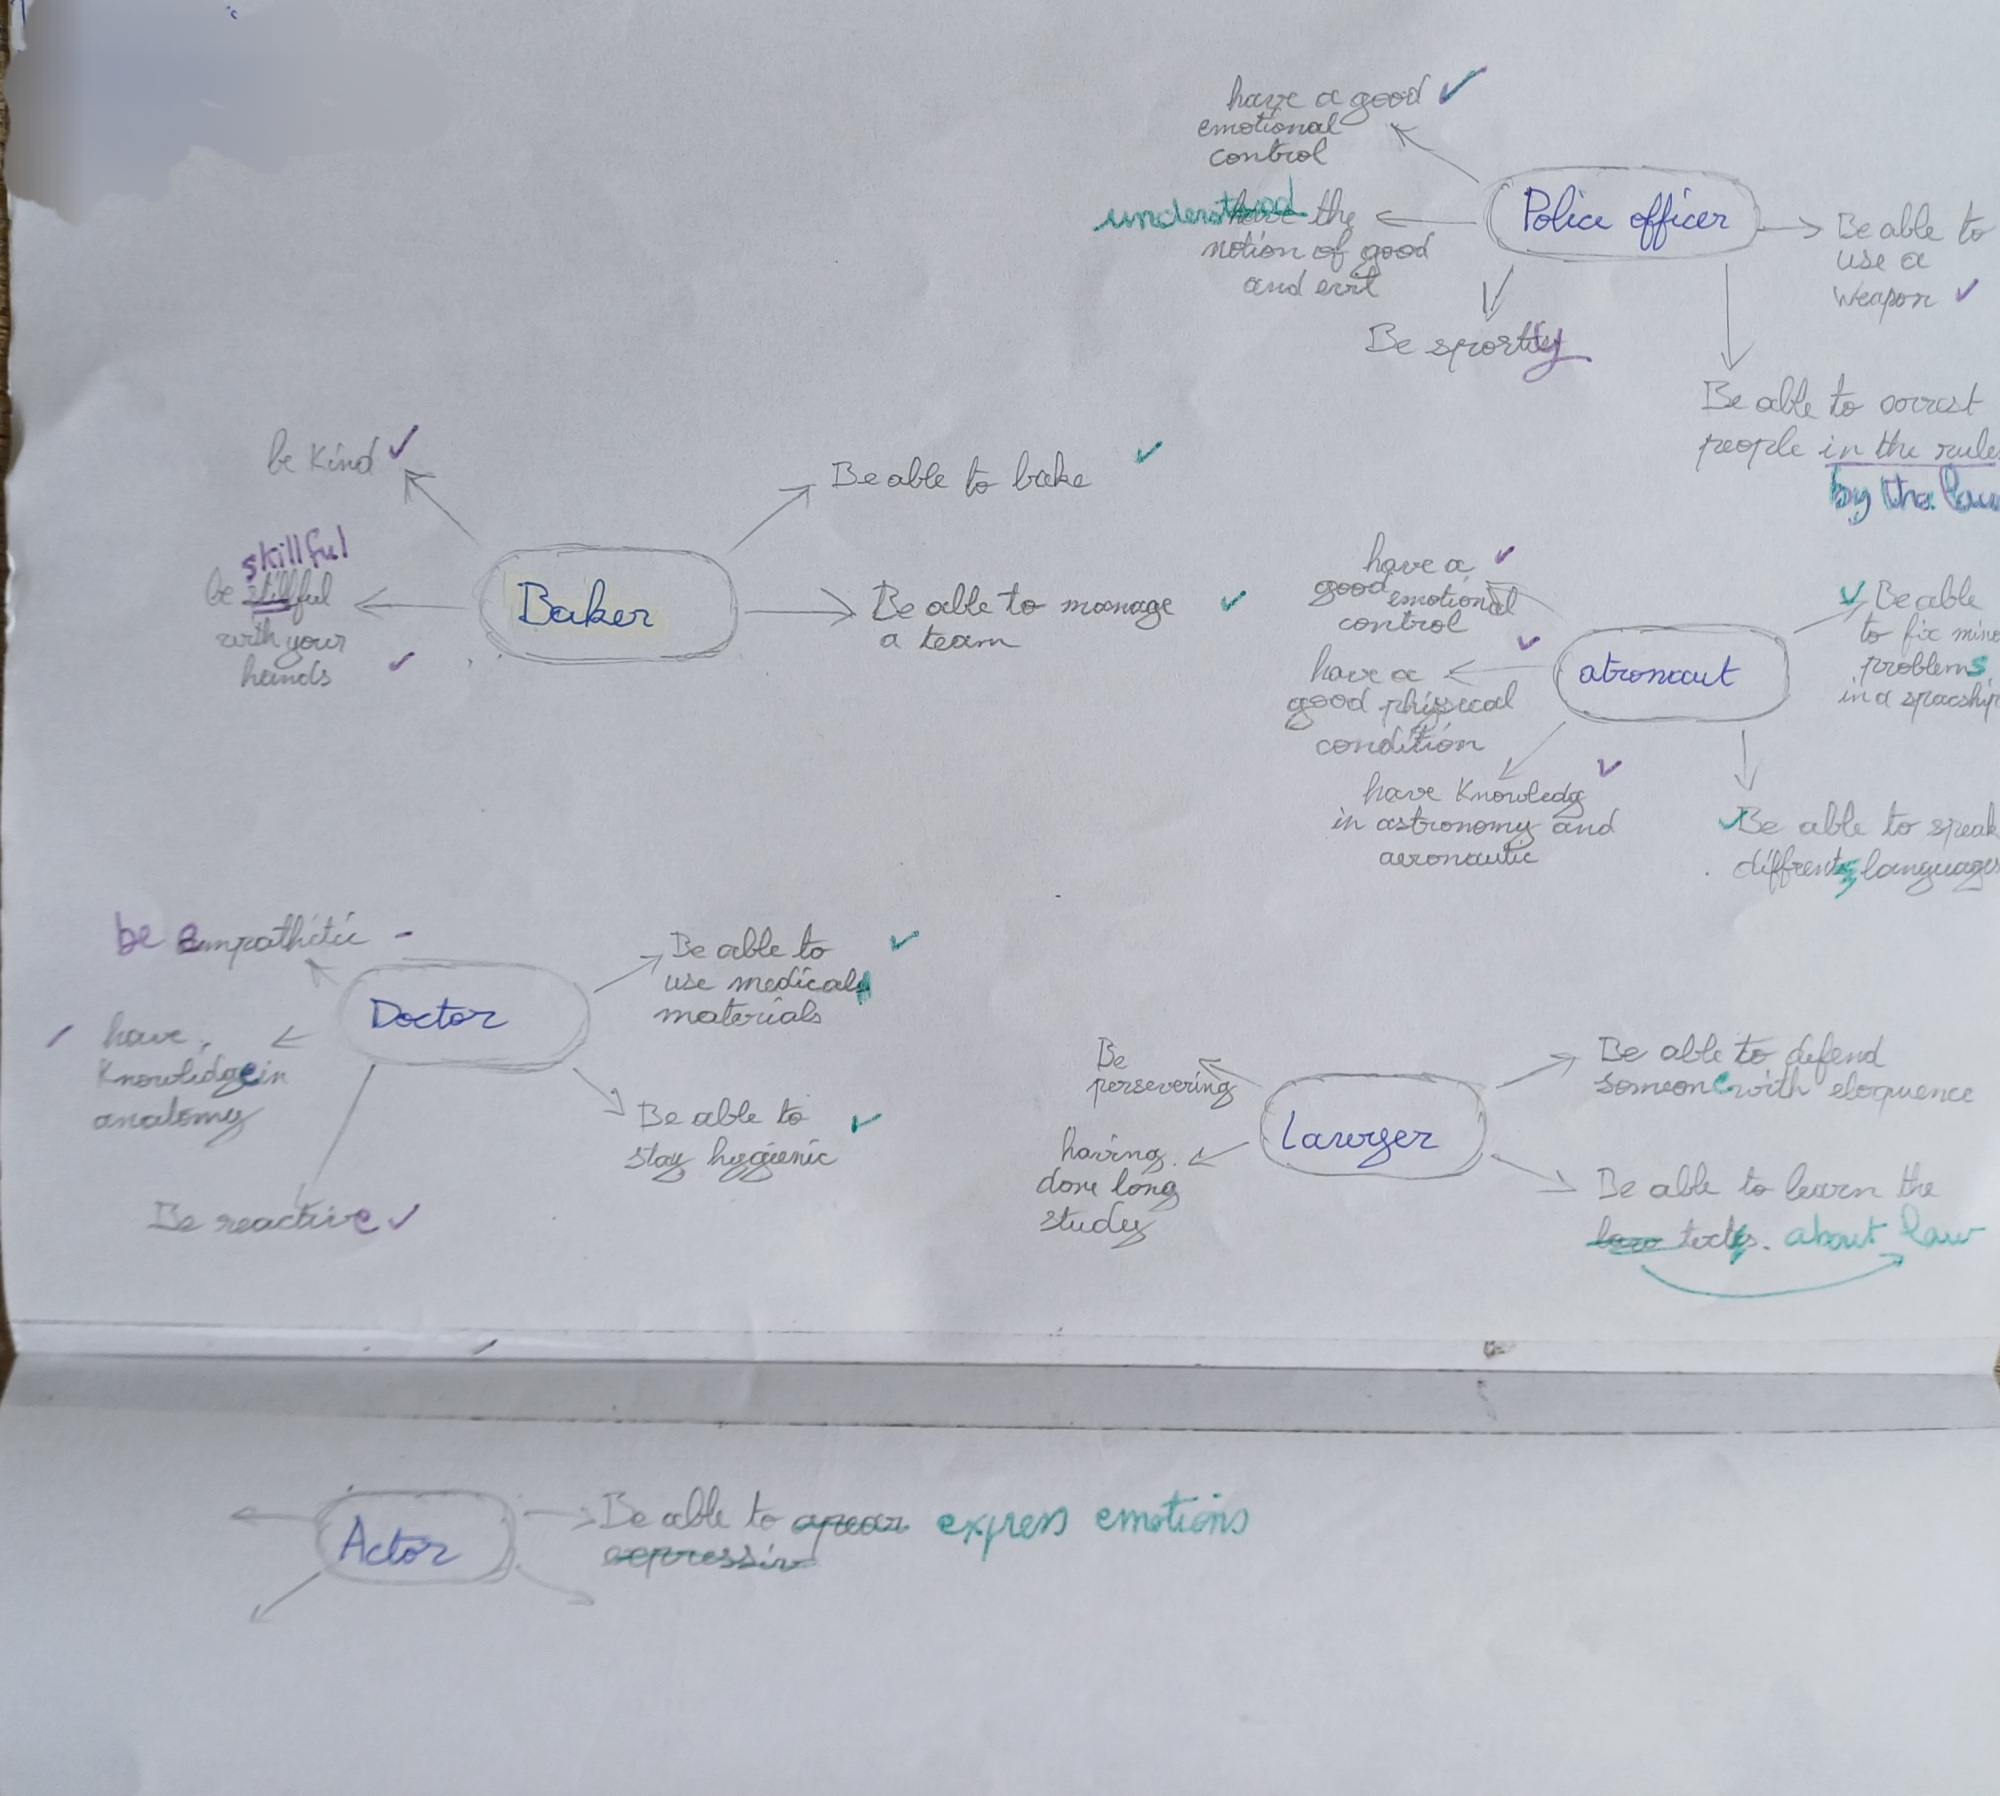 have a good ✓
emotional
control
Police officer
understood have the
notion of good
and evil
Be able to
use a
weapon ✓
Be sportity
Be able to arrest
people in the rules
by the law
be kind ✓
Be able to bake ✓
skillful
be stillful
with your
hands ✓
Baker
Be able to manage ✓
a team
have a ✓
good emotional
control
atronaut
✓ Be able
to fix mino
problems
in a spacship
have a ✓
good physical
condition
have Knowledg ✓
in astronomy and
aeronautic
✓ Be able to speak
diffrents languages
be empathitic -
Doctor
Be able to ✓
use medicals
materials
have
Knowlidge in
anatomy
Be able to ✓
stay hygienic
Be reactive ✓
Be
persevering
Lawyer
Be able to defend
someone with eloquence
having
done long
study
Be able to learn the
law texts. about law
Actor
Be able to apear express emotions
expressiv